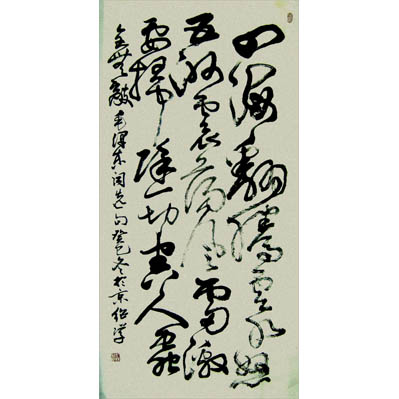 四海翻腾云水怒
五洲震荡风雷激
要扫除一切害人虫
全无敌 毛泽东词选句 癸巳冬于京 绍洋